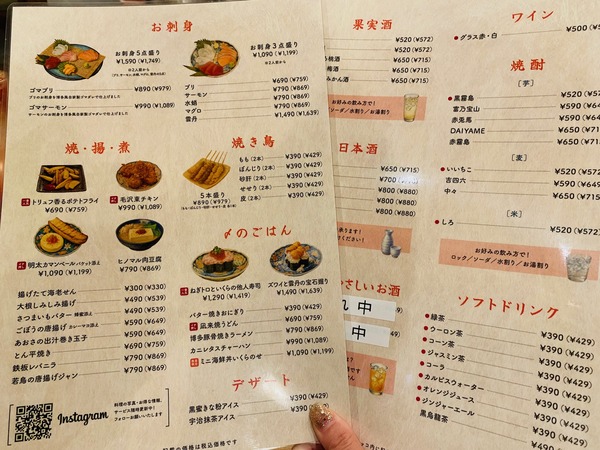 お刺身
お刺身5点盛り
¥1,590 (¥1,749)
※2人前から
お刺身3点盛り
¥1,090 (¥1,199)
※2人前から
ゴマブリ ¥890 (¥979)
ゴマサーモン ¥990 (¥1,089)
ブリ ¥690 (¥759)
サーモン ¥790 (¥869)
水蛸 ¥790 (¥869)
マグロ ¥790 (¥869)
雲丹 ¥1,490 (¥1,639)
焼・揚・煮
トリュフ香るポテトフライ
¥690 (¥759)
毛沢東チキン
¥990 (¥1,089)
明太カマンベール バケット添え
¥1,090 (¥1,199)
ヒノマル肉豆腐
¥790 (¥869)
揚げたて海老せん ¥300 (¥330)
大根しみしみ揚げ ¥490 (¥539)
さつまいもバター 蜂蜜添え ¥590 (¥649)
ごぼうの唐揚げ カレーマヨ添え ¥590 (¥649)
あおさの出汁巻き玉子 ¥590 (¥649)
とん平焼き ¥590 (¥649)
鉄板レバニラ ¥790 (¥869)
若鳥の唐揚げジャン ¥790 (¥869)
焼き鳥
5本盛り
¥890 (¥979)
もも (2本) ¥390 (¥429)
ぼんじり (2本) ¥390 (¥429)
砂肝 (2本) ¥390 (¥429)
せせり (2本) ¥390 (¥429)
皮 (2本) ¥390 (¥429)
〆のごはん
ねぎトロといくらの他人寿司
¥1,290 (¥1,419)
ズワイと雲丹の宝石握り
¥1,490 (¥1,639)
バター焼きおにぎり ¥390 (¥429)
凪来焼うどん ¥590 (¥649)
博多豚骨焼きラーメン ¥790 (¥869)
カニレタスチャーハン ¥990 (¥1,089)
ミニ海鮮丼いくらのせ ¥1,090 (¥1,199)
デザート
黒蜜きな粉アイス ¥390 (¥429)
宇治抹茶アイス ¥390
Instagram
料理の写真・お得な情報、
サービス随時更新中!
フォローお願いします
の価格は税込価格です
果実酒
¥520 (¥572)
¥520 (¥572)
桃酒 ¥650 (¥715)
梅酒 ¥650 (¥715)
みかん酒 ¥650 (¥715)
お好みの飲み方で!
ソーダ/水割り/お湯割り
日本酒
¥650 (¥715)
¥700 (¥770)
¥700 (¥770)
¥800 (¥880)
¥800 (¥880)
¥800 (¥880)
やさしいお酒
中
中
ワイン
グラス赤・白 ¥500
焼酎
[芋]
黒霧島 ¥520
富乃宝山 ¥590
赤兎馬 ¥650
DAIYAME ¥650
赤霧島 ¥650 (¥715)
[麦]
いいちこ ¥520 (¥572)
吉四六 ¥590 (¥649)
中々 ¥650
[米]
しろ ¥520 (¥572)
お好みの飲み方で!
ロック/ソーダ/水割り/お湯割り
ソフトドリンク
緑茶 ¥390 (¥429)
ウーロン茶 ¥390 (¥429)
コーン茶 ¥390 (¥429)
ジャスミン茶 ¥390 (¥429)
コーラ ¥390 (¥429)
カルピスウォーター ¥390 (¥429)
オレンジジュース ¥390 (¥429)
ジンジャーエール ¥390 (¥429)
黒烏龍茶 ¥390 (¥429)